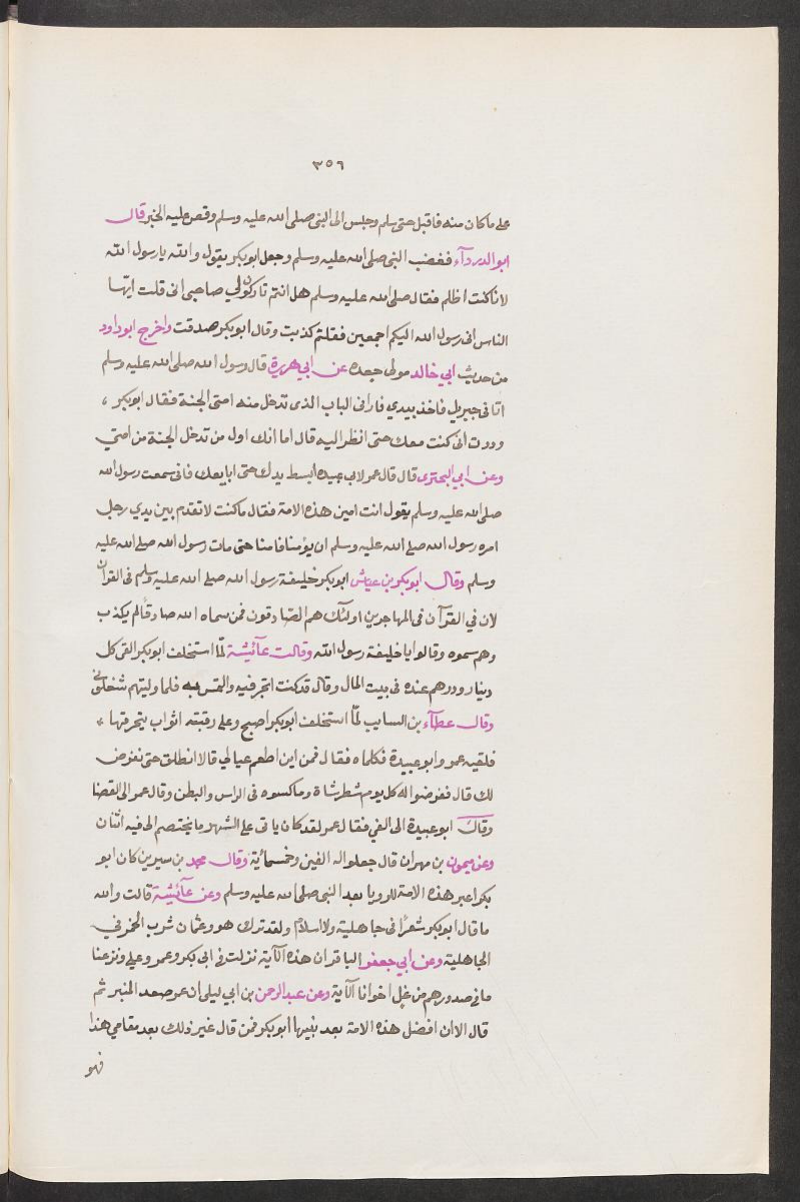 ٣٥٦
على ما كان منه فاقبل حتى سلم وجلس الى النبى صلى الله عليه وسلم وقص عليه الخبر قال
ابو الدردآء فغضب النبى صلى الله عليه وسلم وجعل ابوبكر يقول والله يارسول الله
لانا كنت اظلم فقال صلى الله عليه وسلم هل انتم تاركون لي صاحبى انى قلت ايّها
الناس انى رسول الله اليكم اجمعين فقلتم كذبت وقال ابوبكر صدقت واخرج ابوداود
من حديث ابي خالد مولى جعده عن ابي هريرة قال رسول الله صلى الله عليه وسلم
اتانى جبريل فاخذ بيدي فارانى الباب الذى تدخل منه امتى الجنة فقال ابوبكر ،
وددت انى كنت معك حتى انظر اليه قال اما انك اول من تدخل الجنة من امتي
وعن ابي البحترى قال قال عمر لابى عبيده ابسط يدك حتى ابايعك فانى سمعت رسول الله
صلى الله عليه وسلم يقول انت امين هذه الامة فقال ما كنت لاتقدم بين يدي رجل
امره رسول الله صلى الله عليه وسلم ان يؤمنا فامنا حتى مات رسول الله صلى الله عليه
وسلم وقال ابوبكر بن عياش ابوبكر خليفة رسول الله صلى الله عليه وسلم فى القرآن
لان في القرآن فى المهاجرين اولئك هم الصّادقون فمن سماه الله صادقا لم يكذب
وهم سموه وقالوا يا خليفة رسول الله وقالت عآئيشة لمّا استخلف ابوبكر القى كل
دينار ودرهم عنده فى بيت المال وقال قد كنت اتجر فيه والتمس به فلما وليتهم شغلونى
وقال عطآء بن السايب لمّا استخلف ابوبكر اصبح وعلى رقبته اثواب يتجر بها *
فلقيه عمر وابوعبيدة فكلماه فقال فمن اين اطعم عيالي قالا انطلق حتى نفرض
لك قال ففرضوا له كل يوم شطر شاة وماكسوه فى الراس والبطن وقال عمر الى القضا
وقال ابوعبيدة الى الفي فقال عمر لقد كان ياتى على الشهر ما يختصم الى فيه اثنان
وعن ميمون بن مهران قال جعلوا له الفين وخمسمائة وقال محمد بن سيرين كان ابو
بكر اعبر هذه الامة للرويا بعد النبى صلى الله عليه وسلم وعن عآئيشة قالت والله
ما قال ابوبكر شعرًا فى جاهلية ولا اسلام ولقد ترك هو وعثمان شرب الخمر في
الجاهلية وعن ابي جعفر الباقر ان هذه الآية نزلت فى ابى بكر وعمر وعلي ونزعنا
ما فى صدورهم من غل اخوانا الآية وعن عبدالرحمن بن ابي ليلى ان عمر صعد المنبر ثم
قال الا ان افضل هذه الامة بعد نبيها ابوبكر فمن قال غير ذلك بعد مقامي هذا
فهو